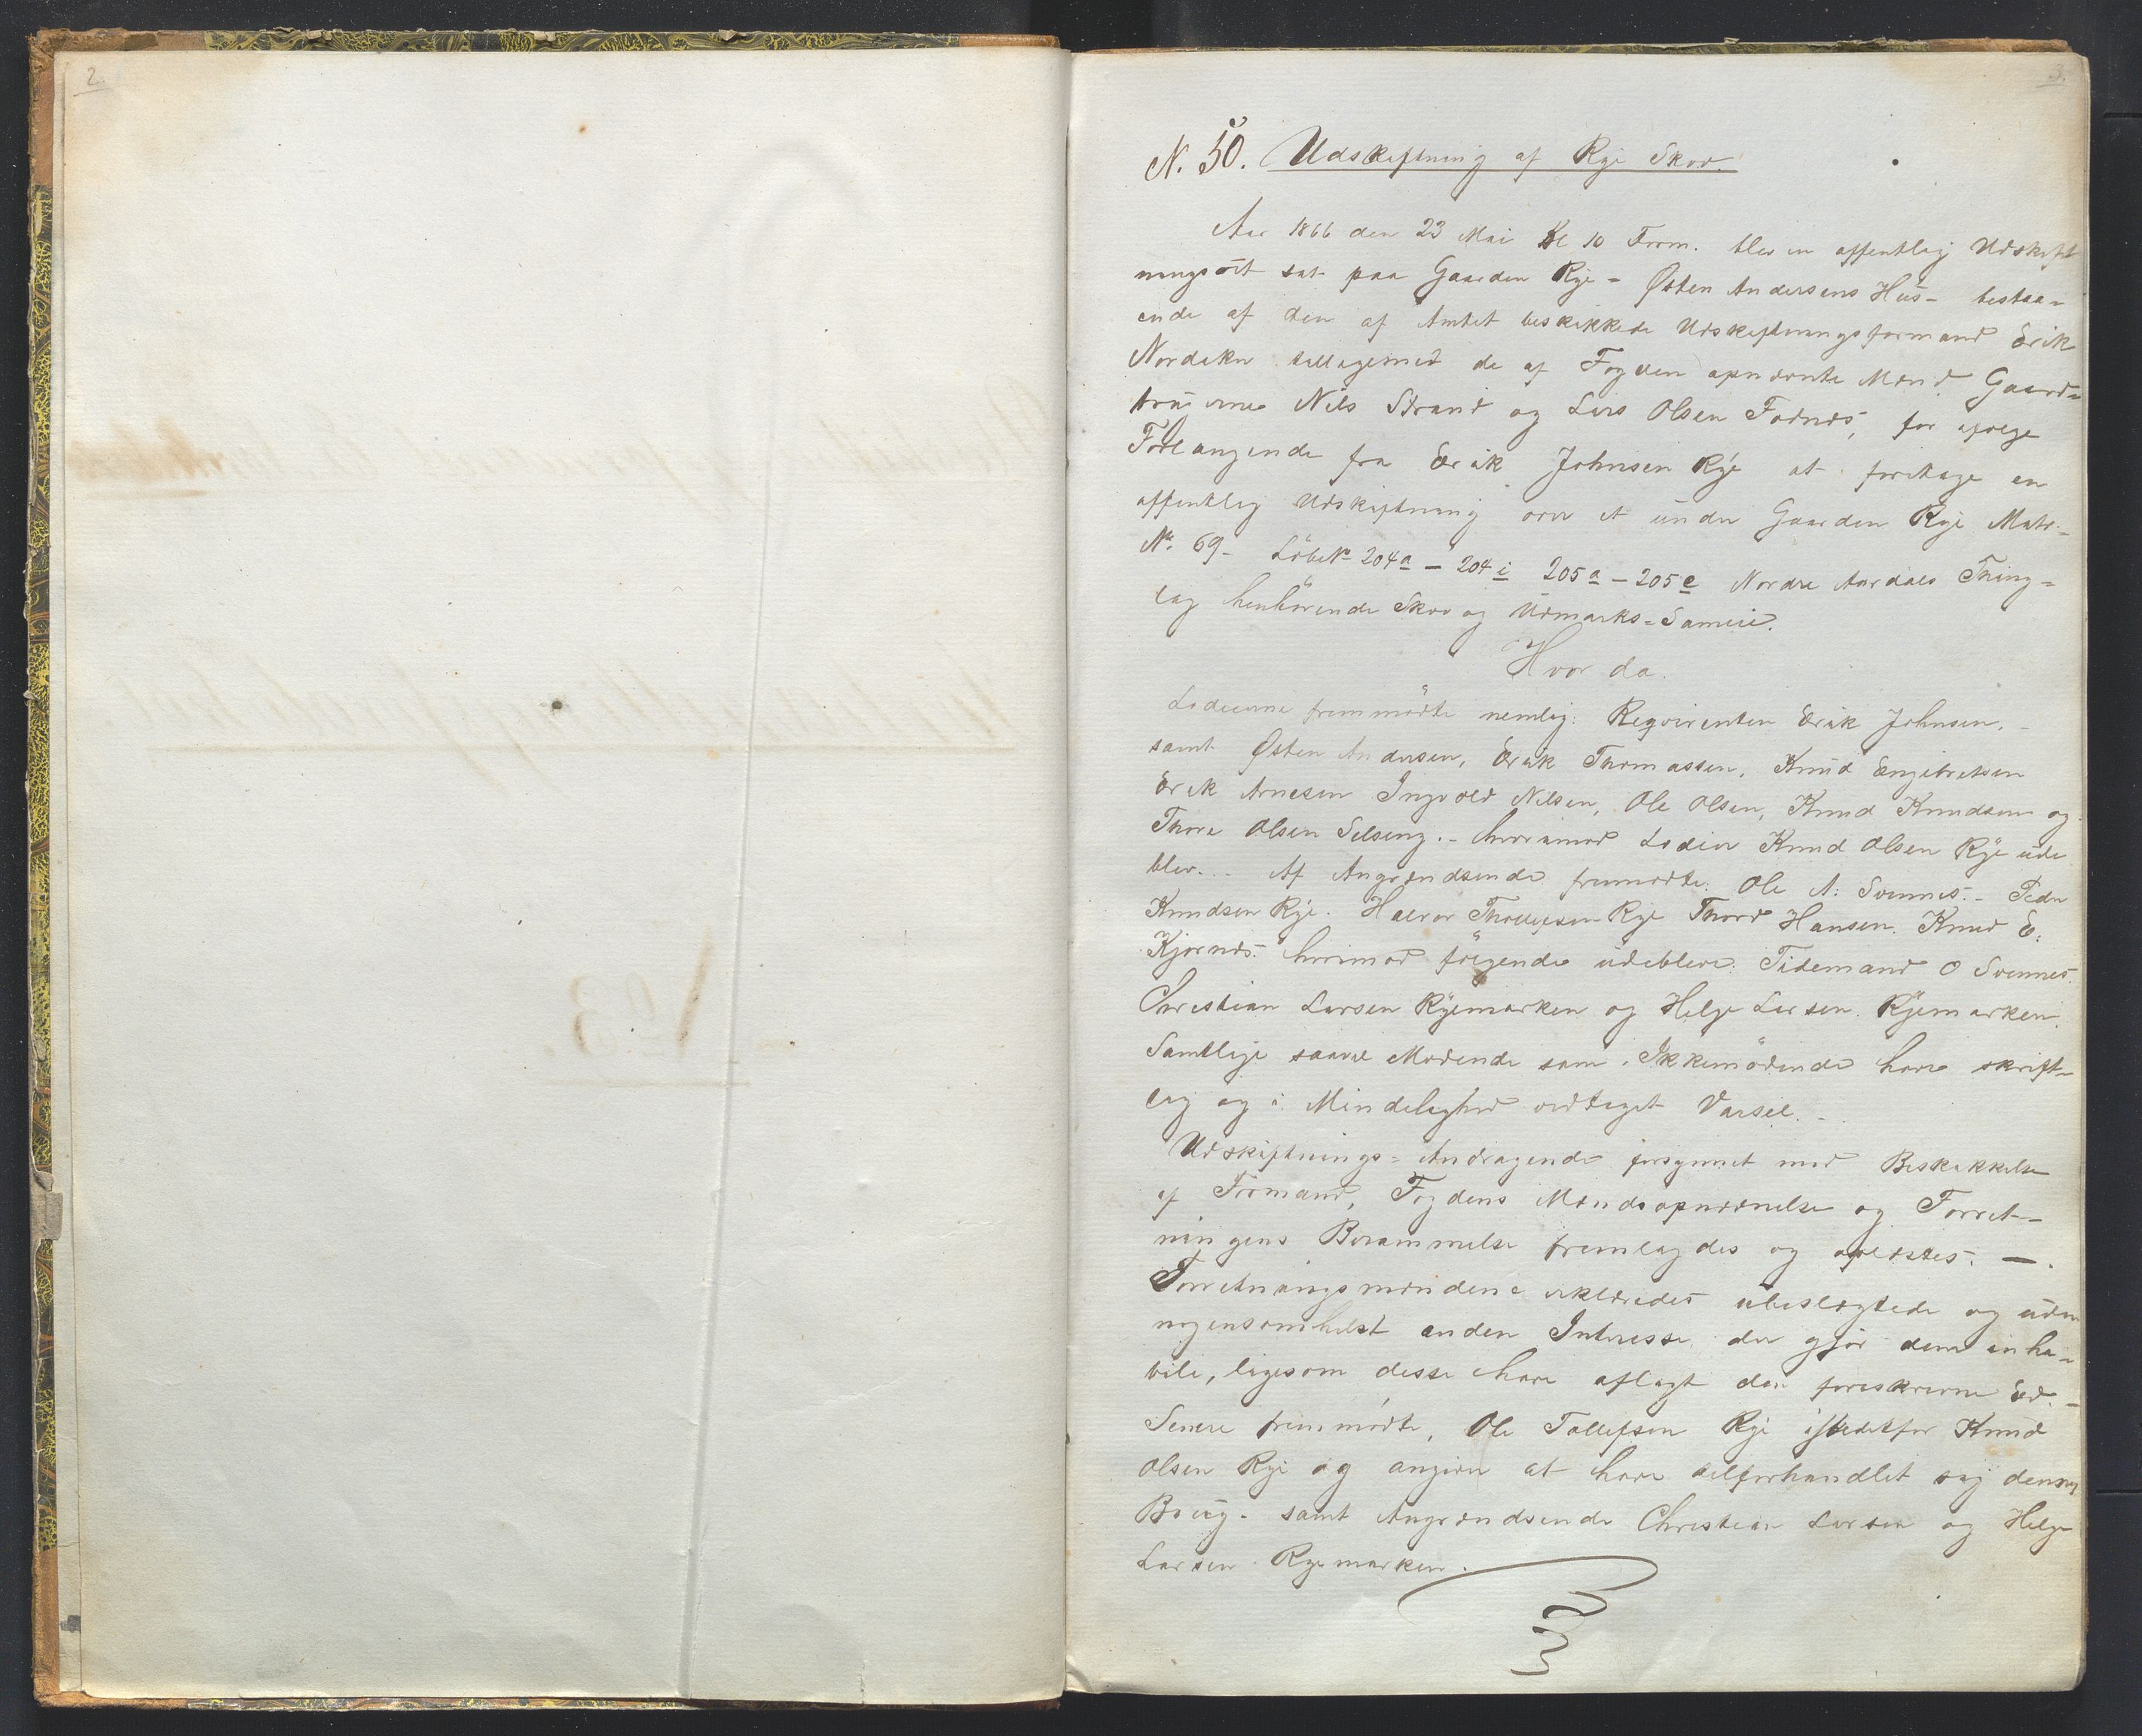 2.
3.
N. 50. Udskiftning af Rye Skov.
Aar 1866 den 23 Mai Kl 10 Form. blev en offentlig Udskift
ningsret sat paa Gaarden Rye - Østen Andersens Hus - bestaa-
ende af den af Amtet beskikkede Udskiftningsformand Erik
Nordekn tilligemed de af Fogden opnævnte Mænd Gaard-
brugerne Nils Strand og Lars Olsen Fodnes, for ifølge
Forlangende fra Erik Johnsen Rye at foretage en
offentlig Udskiftning over et under Gaarden Rye Matr.
No. 69 - LöbeN- 204a - 204i 205a - 205e Nordre Aurdals Thing-
lag henhörende Skov og Udmarks-Sameie.
Hvor da.
Lodeierne fremmödte nemlig: Reqvirenten Erik Johnsen. -
samt Østen Andersen, Erik Thomassen, Knud Engebretsen
Erik Arnesen Ingvold Nilsen, Ole Olsen, Knud Knudsen og
Thore Olsen Selseng. - hvorimod Lodeier Knud Olsen Rye ude
blev. - Af Angrændsende fremmødte: Ole A: Svennes. - Peder
Knudsen Rye. Halvor Thollefsen Rye Thord Hansen. Knud E:
Kjørnes. hvorimod følgende udebleve: Tidemand O Svennes.
Christian Larsen Ryemarken og Helge Larsen Ryemarken.
Samtlige saavel Mødende som Ikkemödende have skrift-
lig og i Mindelighed vedtaget Varsel. -
Udskiftnings-Andragende forsynnet med Beskikkelse
af Formand, Fogdens Mændsopnævnelse og Forret-
ningens Berammelse fremlagdes og oplæstes. -
Forretningsmændene erklæredes ubeslægtede og uden
nogensomhelst anden Interesse der gjör dem inha-
bile, ligesom disse have aflagt den foreskrevne Ed. -
Senere fremmödte, Ole Tollefsen Rye istedetfor Knud
Olsen Rye og angiver at have tilforhandlet sig dennes
Brug. samt Angrændsende Christian Larsen og Helge
Larsen Ryemarken.